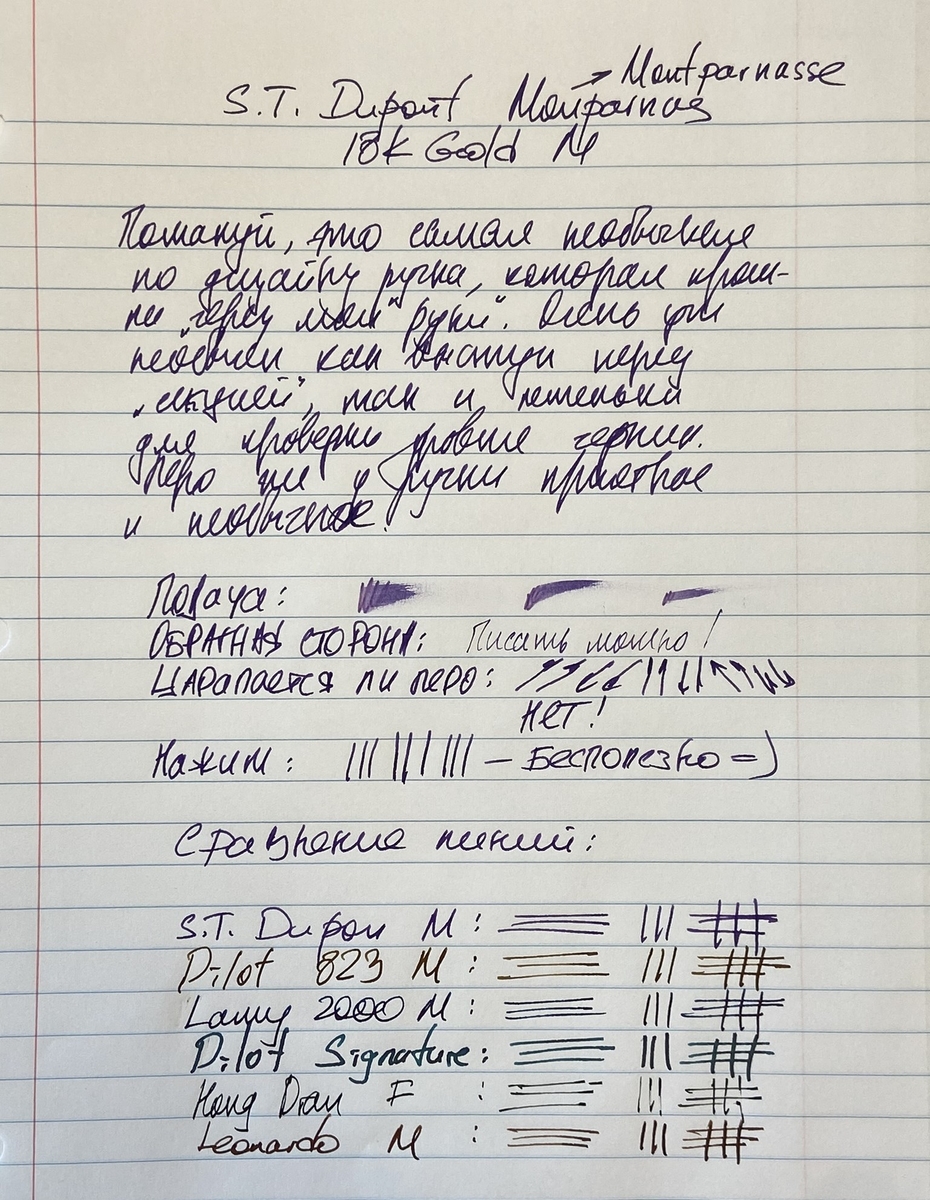 → Montparnasse
S.T. Dupont Monparnas
18k Gold M
Пожалуй, это самая необычная
по дизайну ручка, которая прош-
ла „через мои“ руки“. Очень
необычен как перед
„ “, так и
для проверки уровня чернил.
Перо же у ручки приятное
и необычное.
Подача:
ОБРАТНАЯ СТОРОНА: Писать можно!
ЦАРАПАЕТСЯ ЛИ ПЕРО:
НЕТ!
Нажим: — Бесполезно =)
Сравнение линий:
S.T. Dupon M :
Pilot 823 M :
Lamy 2000 M :
Pilot Signature :
Hong Dian F :
Leonardo M :